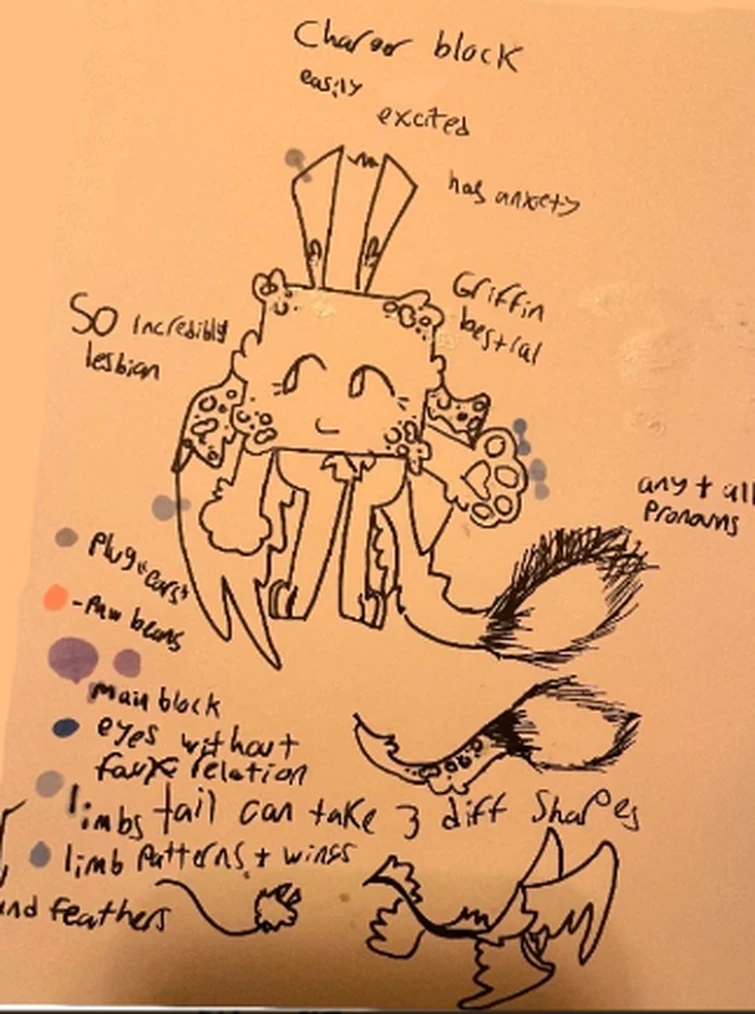 Charger block
easily
excited
has anxiety
Griffin
bestial
So incredibly
lesbian
any + all
Pronouns
Plug "ears"
- Paw beans
main block
eyes without
relation
limbs tail can take 3 diff shapes
limb patterns + wings
and feathers